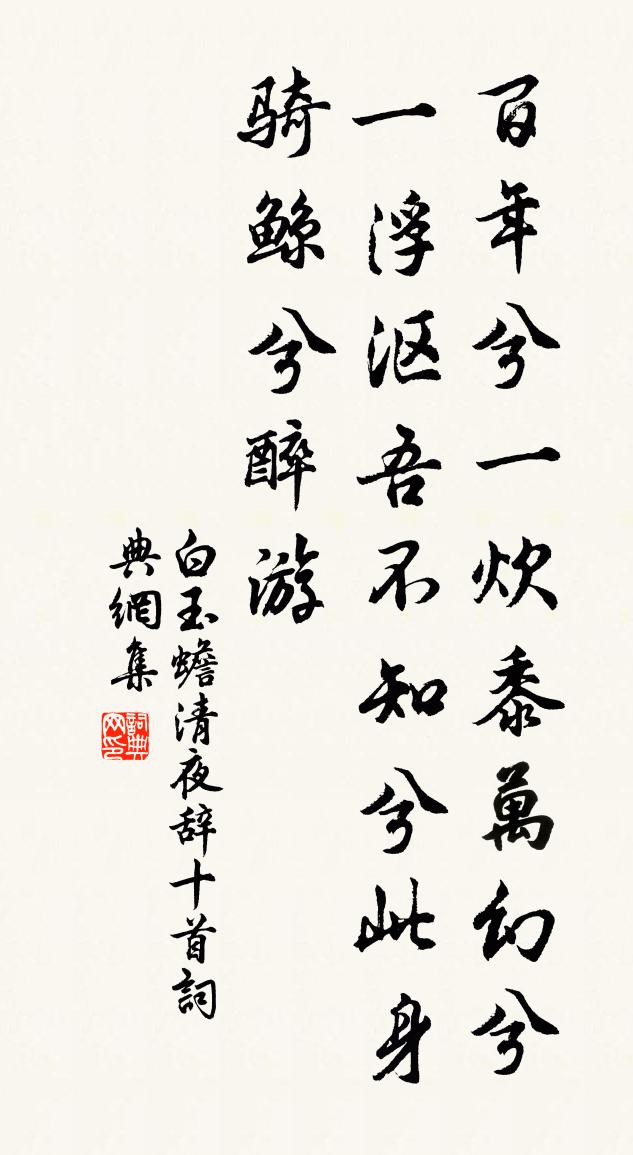 百年兮一炊黍萬幻兮
一浮沤吾不知兮此身
骑鲸兮醉游
白玉蟾清夜辞十首詞
典網集
詞典
网印